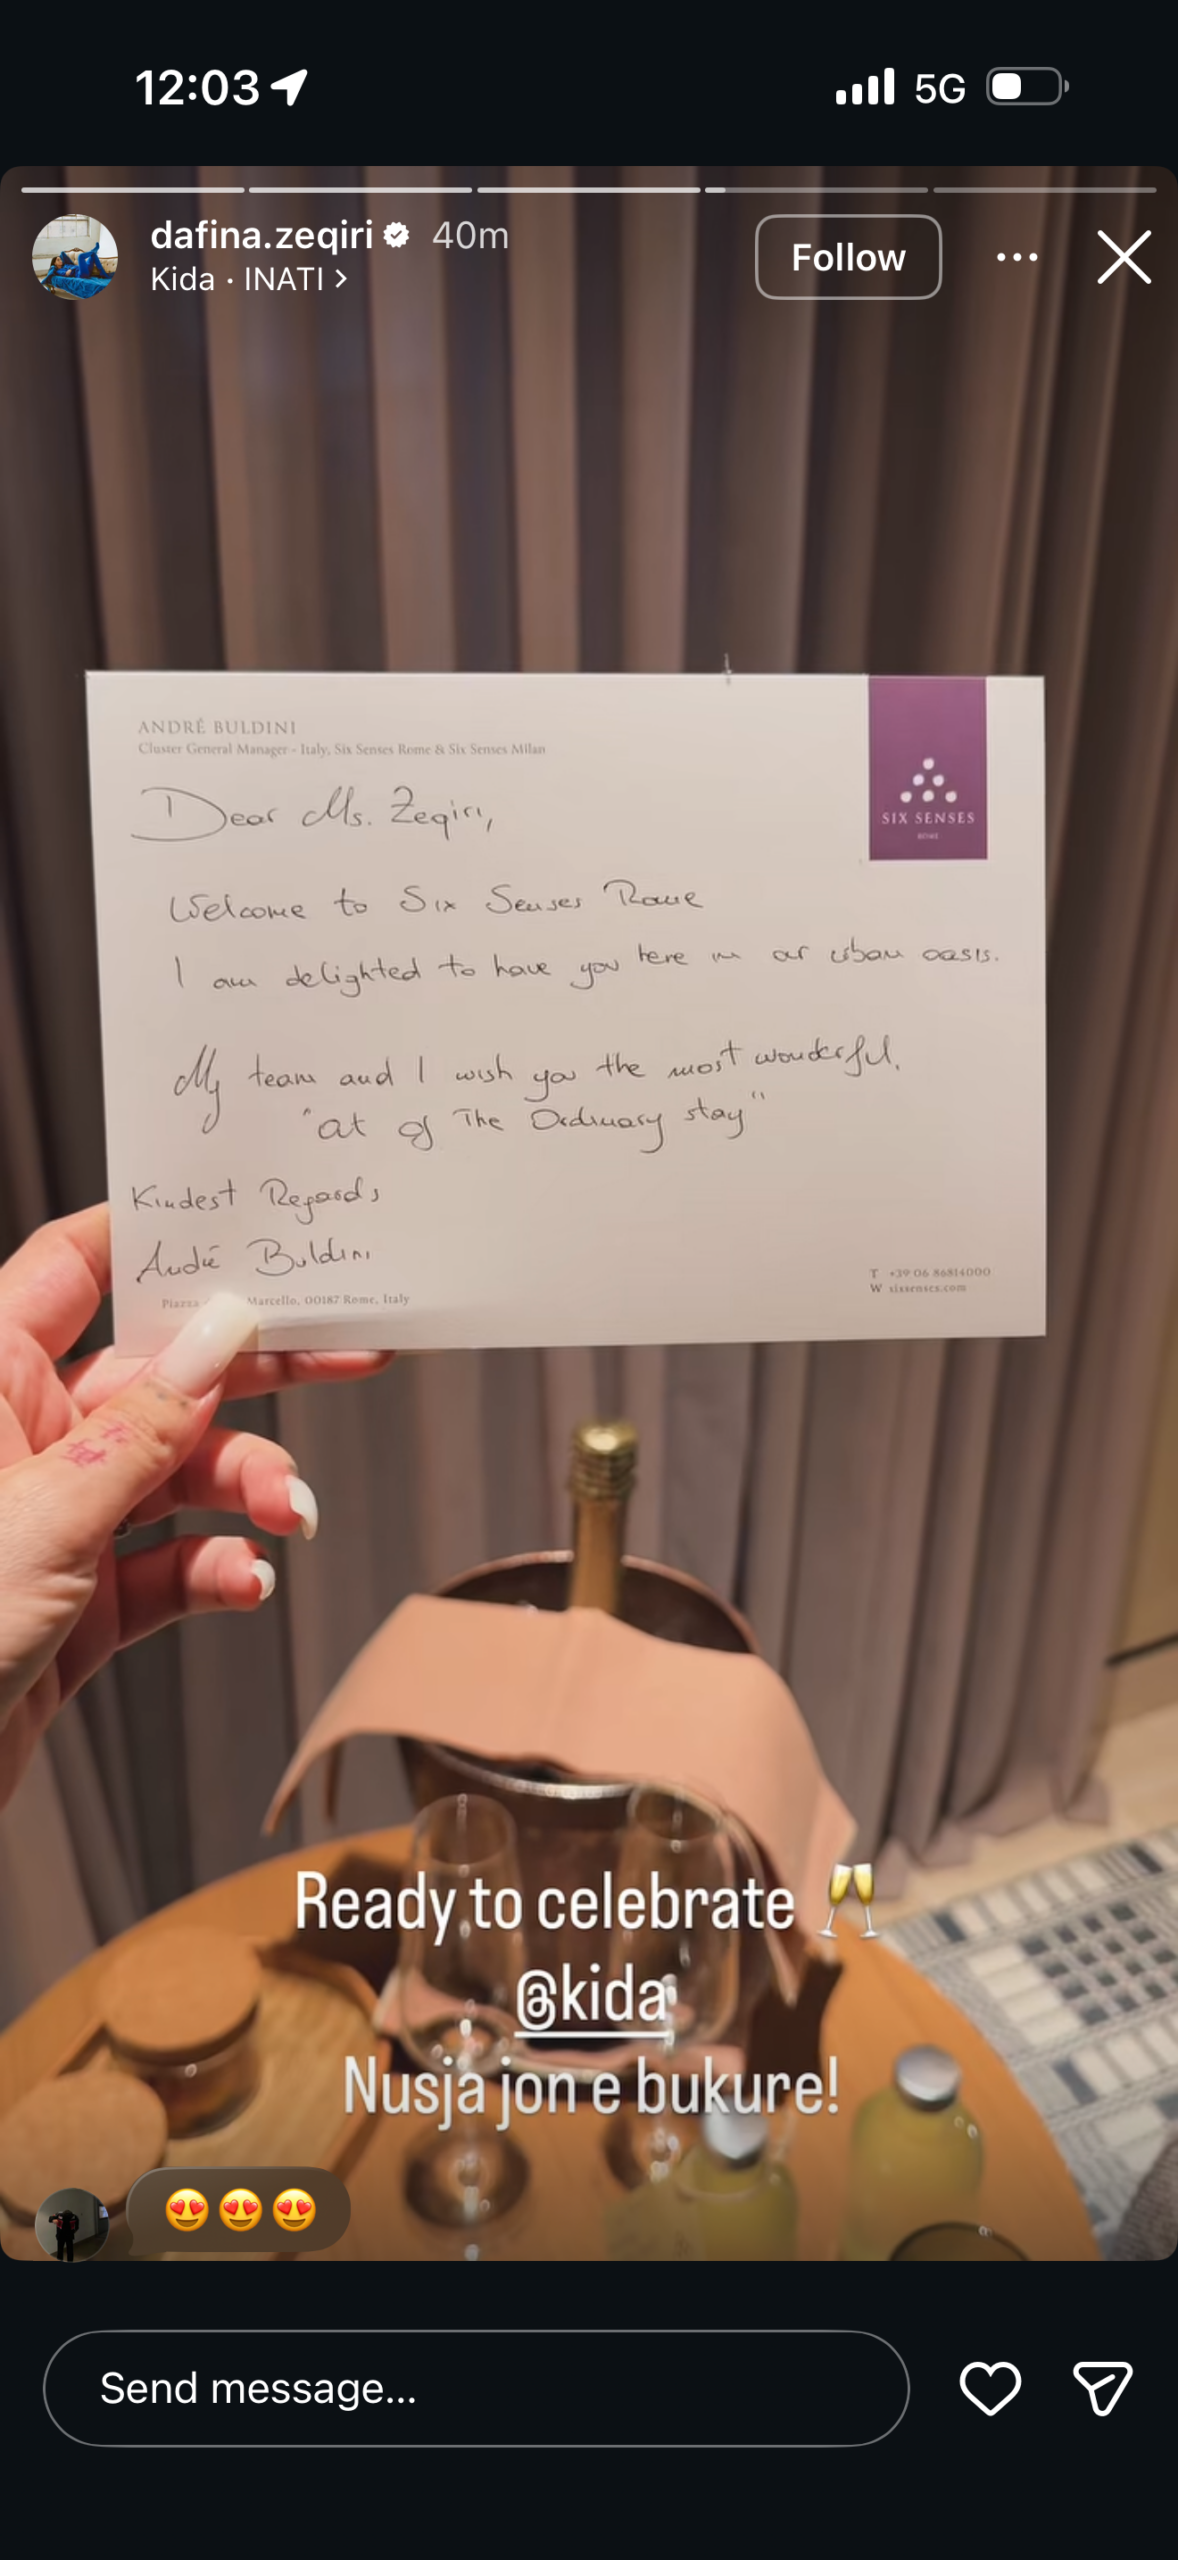 12:03
5G
dafina.zeqiri 40m
Kida · INATI >
Follow
ANDRÉ BULDINI
Cluster General Manager - Italy, Six Senses Rome & Six Senses Milan
SIX SENSES
ROME
Dear Ms. Zeqiri,
Welcome to Six Senses Rome
I am delighted to have you here in our urban oasis.
My team and I wish you the most wonderful,
"out of The Ordinary stay"
Kindest Regards
André Buldini
Piazza Marcello, 00187 Rome, Italy
T +39 06 86814000
W sixsenses.com
Ready to celebrate 🥂
@kida
Nusja jon e bukure!
😍😍😍
Send message...